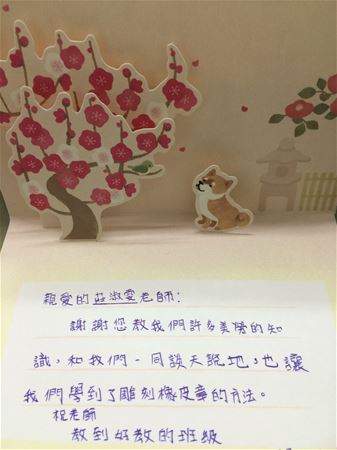 親愛的莊淑雯老師:
謝謝您教我們許多美勞的知
識,和我們一同談天說地,也讓
我們學到了雕刻橡皮章的方法。
祝老師
教到好教的班級